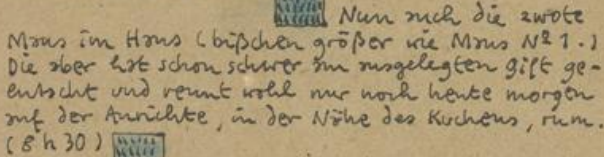 Nun auch die zwote
Maus im Haus (bißchen größer wie Maus № 1.)
Die aber hat schon schwer am ausgelegten Gift ge-
lutscht und rennt wohl nur noch heute morgen
auf der Anrichte, in der Nähe des Kuchens, rum.
(8 h 30)